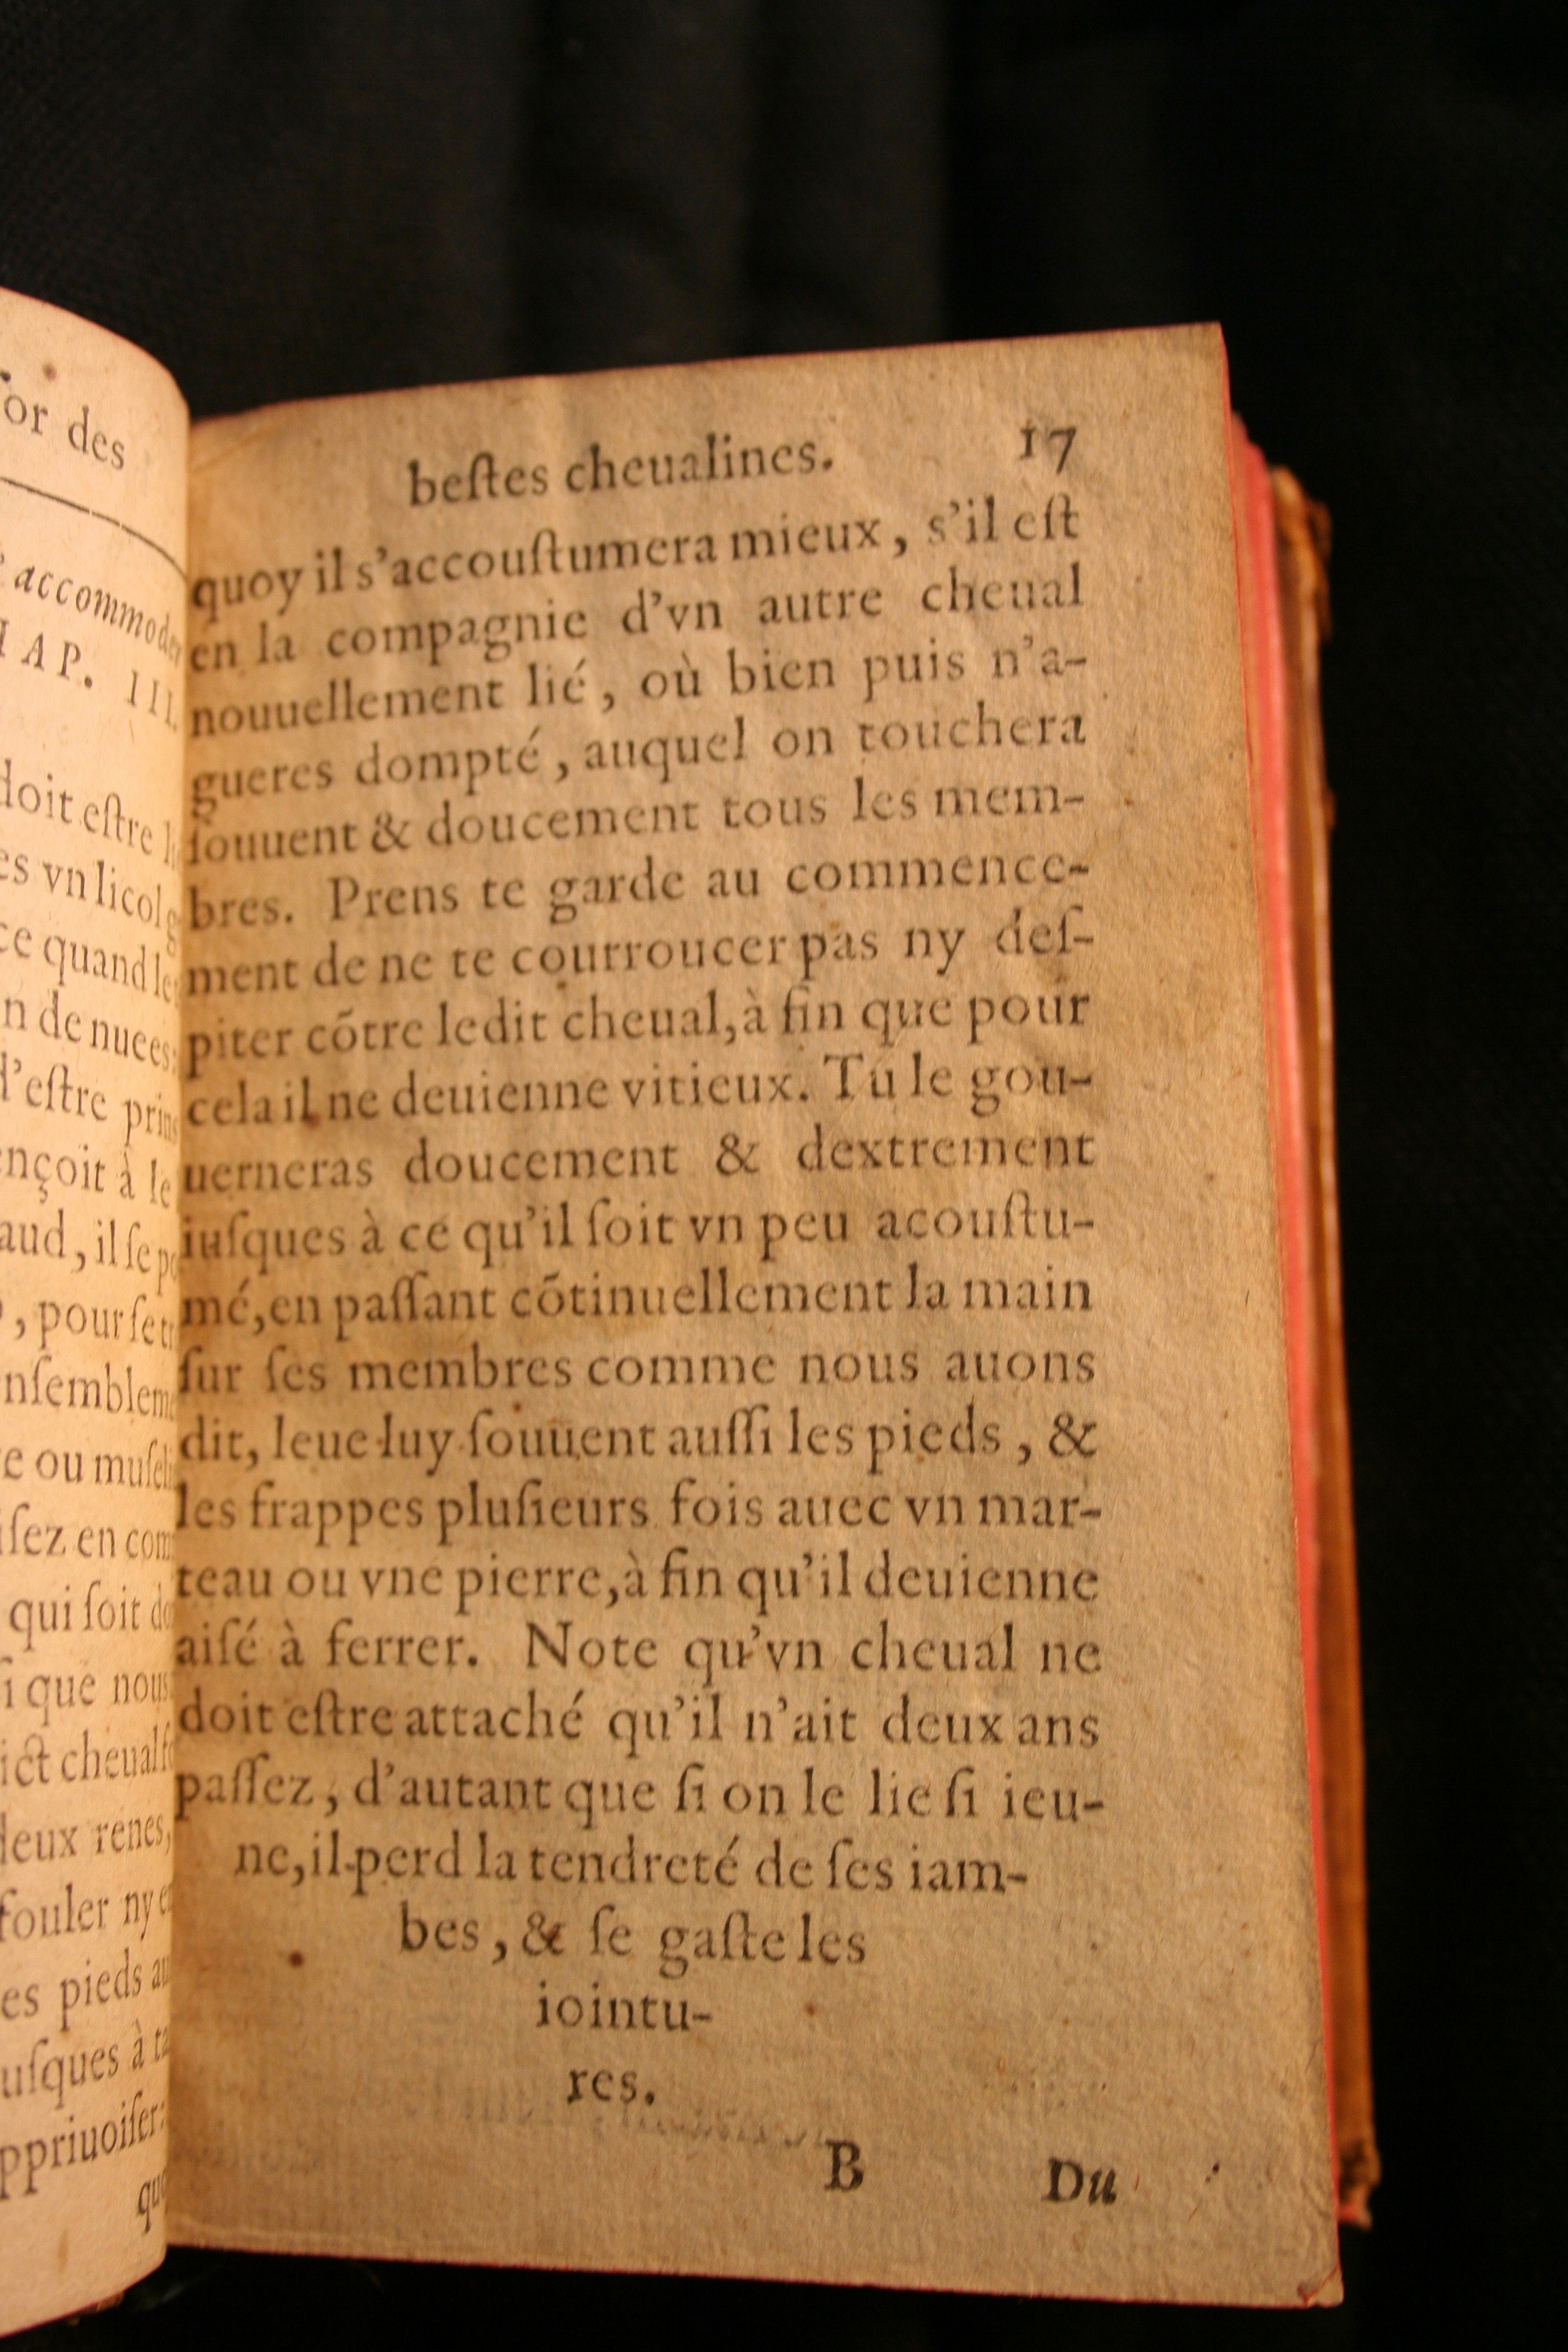 or des
accommoder
AP. III.
doit estre
es vn licol
ce quand le
n de nuees:
d'estre prins
ençoit à le
aud, il se
, pour se
nsemblem
e ou musel
isez en com
qui soit
si que nous
ict cheual
deux renes,
fouler ny
es pieds au
usques à
ppriuoiser:
quo
bestes cheualines. 17
quoy il s'accouſtumera mieux, s'il eſt
en la compagnie d'vn autre cheual
nouuellement lié, où bien puis n'a-
gueres dompté, auquel on touchera
ſouuent & doucement tous les mem-
bres. Prens te garde au commence-
ment de ne te courroucer pas ny deſ-
piter cõtre ledit cheual, à fin que pour
cela il ne deuienne vitieux. Tu le gou-
uerneras doucement & dextrement
iuſques à ce qu'il ſoit vn peu acouſtu-
mé, en paſſant cõtinuellement la main
ſur ſes membres comme nous auons
dit, leue-luy ſouuent auſſi les pieds, &
les frappes pluſieurs fois auec vn mar-
teau ou vne pierre, à fin qu'il deuienne
aiſé à ferrer. Note qu'vn cheual ne
doit eſtre attaché qu'il n'ait deux ans
paſſez, d'autant que ſi on le lie ſi ieu-
ne, il perd la tendreté de ſes iam-
bes, & ſe gaſte les
iointu-
res.
B Du